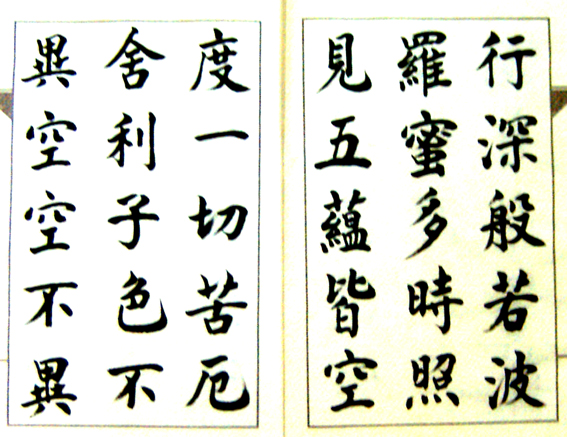 行深般若波
羅蜜多時照
見五蘊皆空
度一切苦厄
舍利子色不
異空空不異